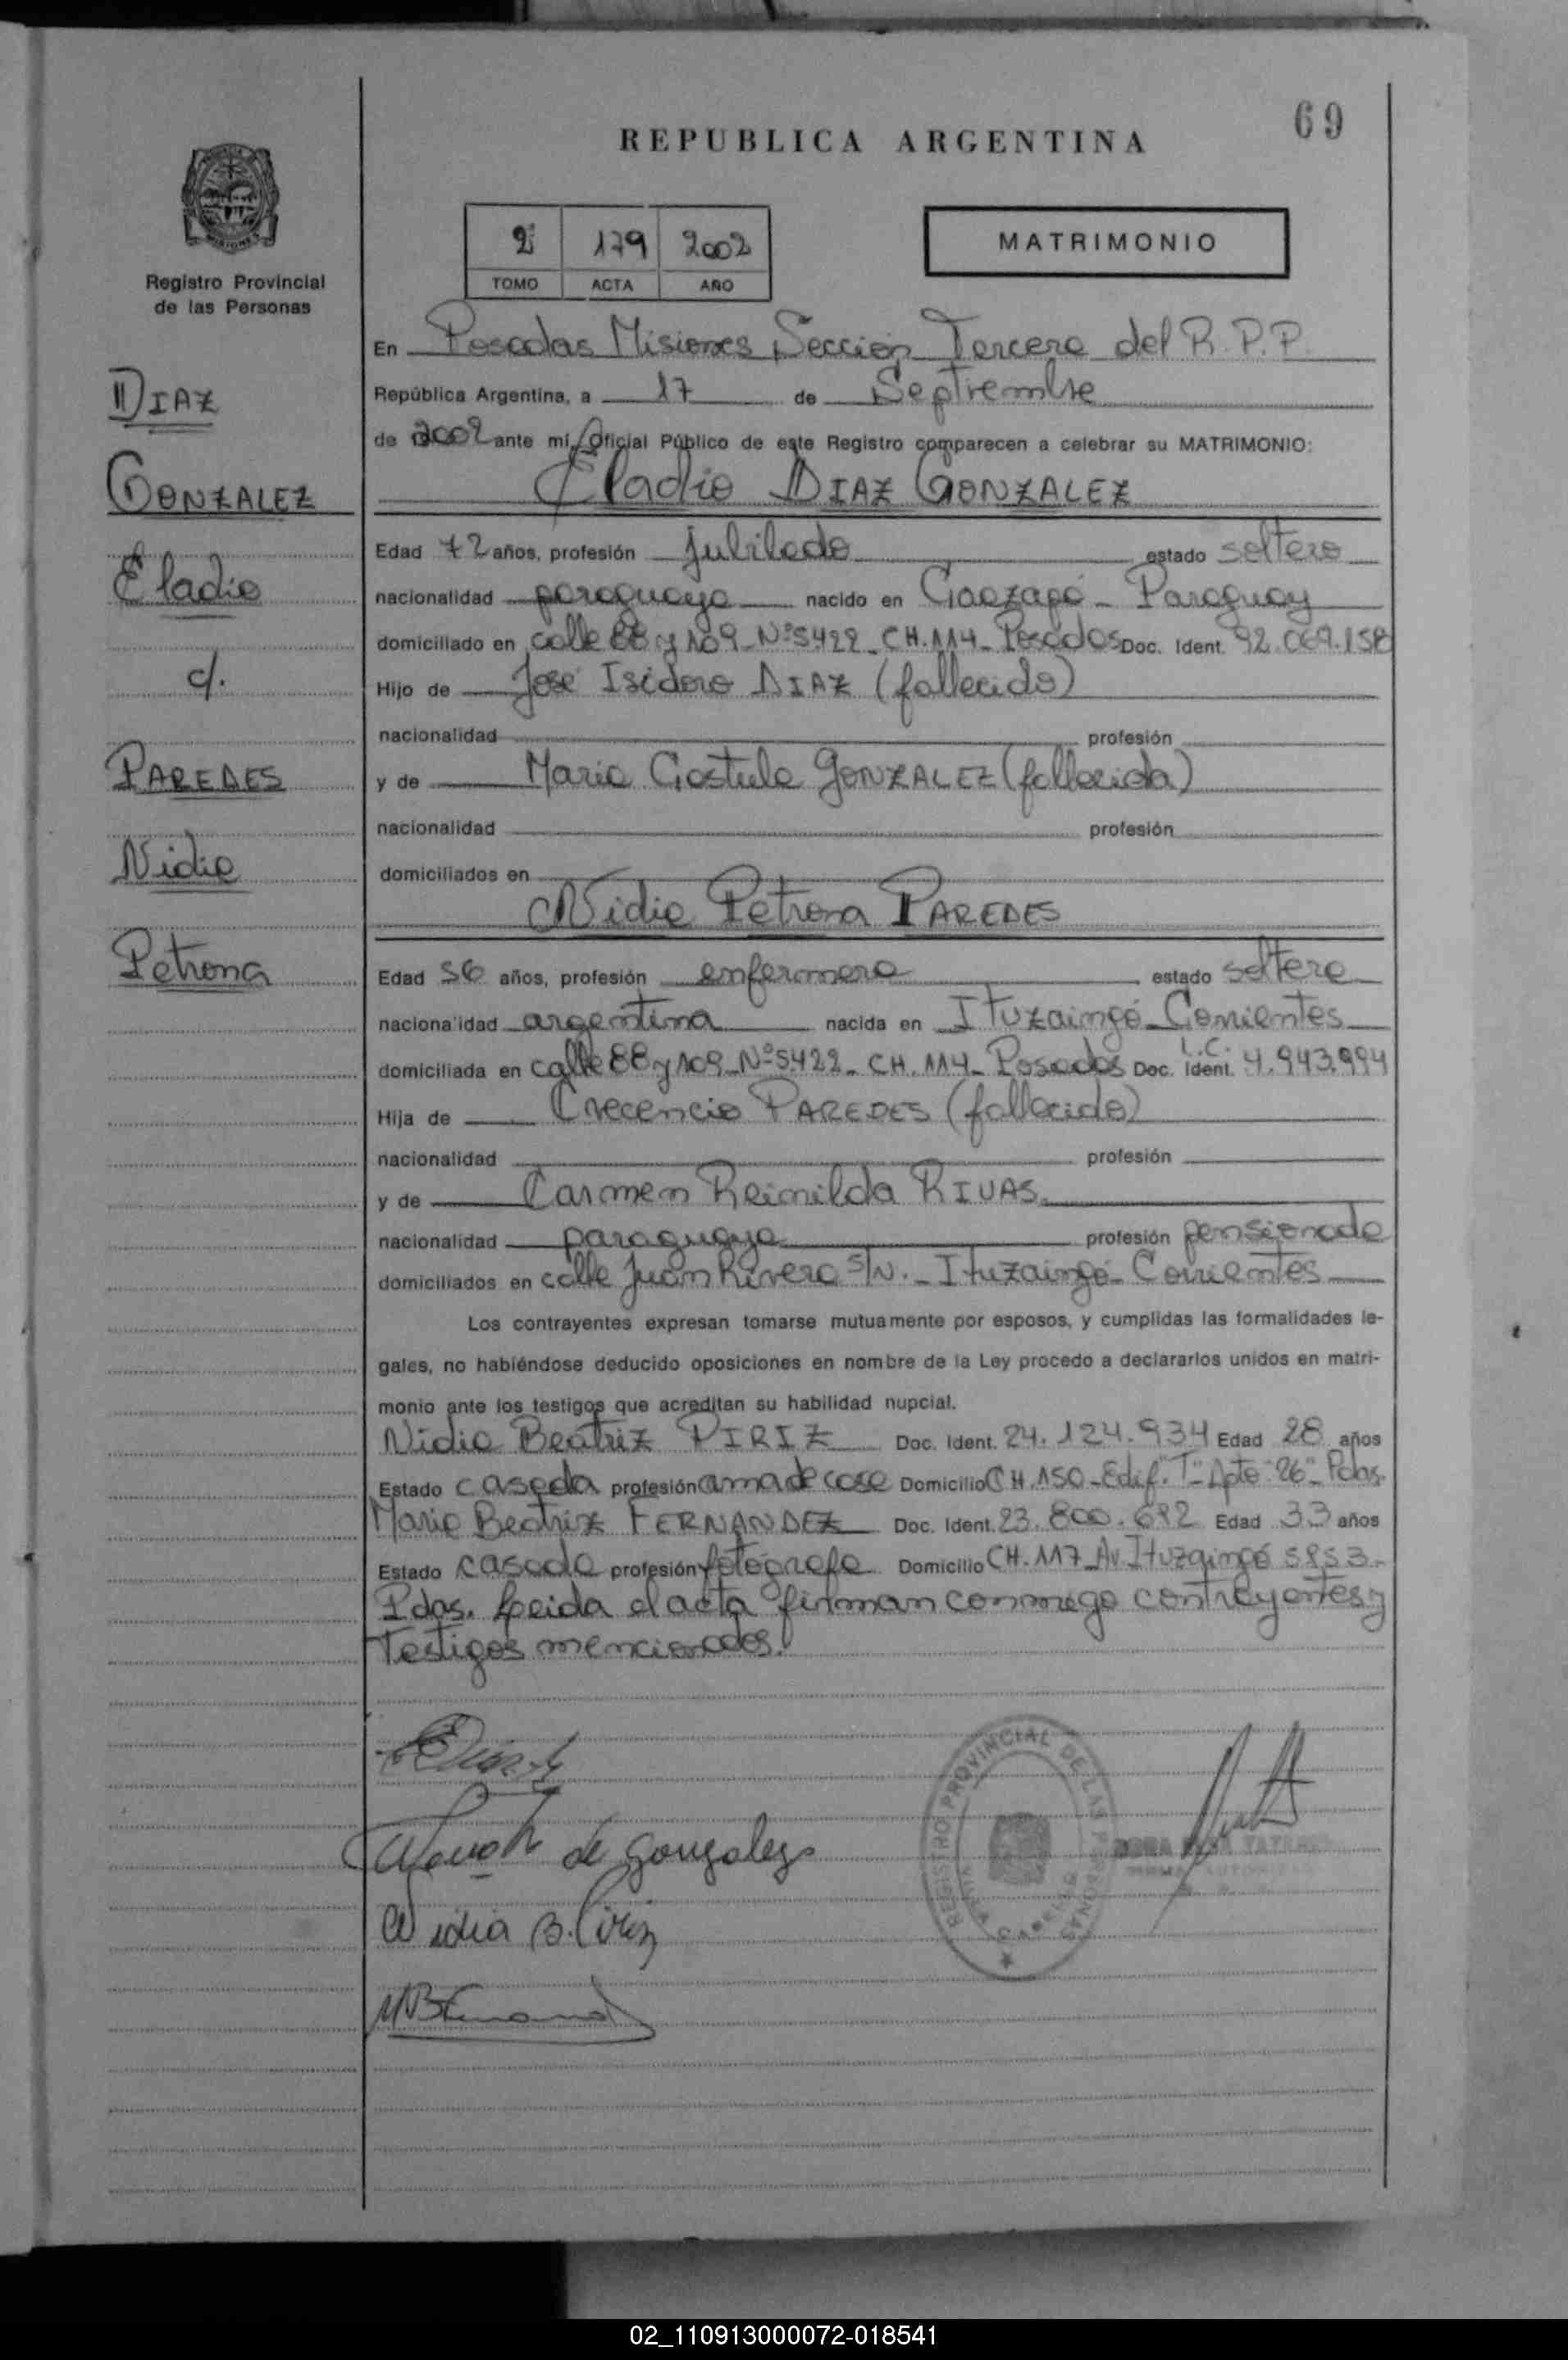 69
REPUBLICA ARGENTINA
2º 179 2002
TOMO ACTA AÑO
MATRIMONIO
Registro Provincial
de las Personas
DIAZ
GONZALEZ
Eladio
c/.
PAREDES
Nidia
Petrona
En Posadas Misiones Sección Tercera del R.P.P.
República Argentina, a 17 de Septiembre
de 2002 ante mí, Oficial Público de este Registro comparecen a celebrar su MATRIMONIO:
Eladio DIAZ GONZALEZ
Edad 72 años, profesión jubilado estado soltero
nacionalidad paraguaya nacido en Caazapá - Paraguay
domiciliado en calle 88 y 109 - Nº 5422 - CH. 114 - Posadas Doc. Ident. 92.069.158
Hijo de José Isidoro DIAZ (fallecido)
nacionalidad profesión
y de María Castula GONZALEZ (fallecida)
nacionalidad profesión
domiciliados en
Nidia Petrona PAREDES
Edad 56 años, profesión enfermera estado soltera
nacionalidad argentina nacida en Ituzaingó - Corrientes
domiciliada en calle 88 y 109 - Nº 5422 - CH. 114 - Posadas Doc. Ident. L.C. 4.943.994
Hija de Crecencio PAREDES (fallecido)
nacionalidad profesión
y de Carmen Reimilda RIVAS.
nacionalidad paraguaya profesión pensionada
domiciliados en calle Juan Rivera S/N. - Ituzaingó - Corrientes
Los contrayentes expresan tomarse mutuamente por esposos, y cumplidas las formalidades le-
gales, no habiéndose deducido oposiciones en nombre de la Ley procedo a declararlos unidos en matri-
monio ante los testigos que acreditan su habilidad nupcial.
Nidia Beatriz PIRIZ Doc. Ident. 24.124.934 Edad 28 años
Estado casada profesión ama de casa Domicilio CH. 150 - Edif. "T" - Dpto "26" - Pdas.
María Beatriz FERNANDEZ Doc. Ident. 23.800.692 Edad 33 años
Estado casada profesión fotógrafa Domicilio CH. 117 - Av. Ituzaingó 5853 -
Pdas. Leida el acta firman conmigo contrayentes y
testigos mencionados.
de Gonzalez
Nidia B. Piriz
REGISTRO PROVINCIAL DE LAS PERSONAS
02_110913000072-018541